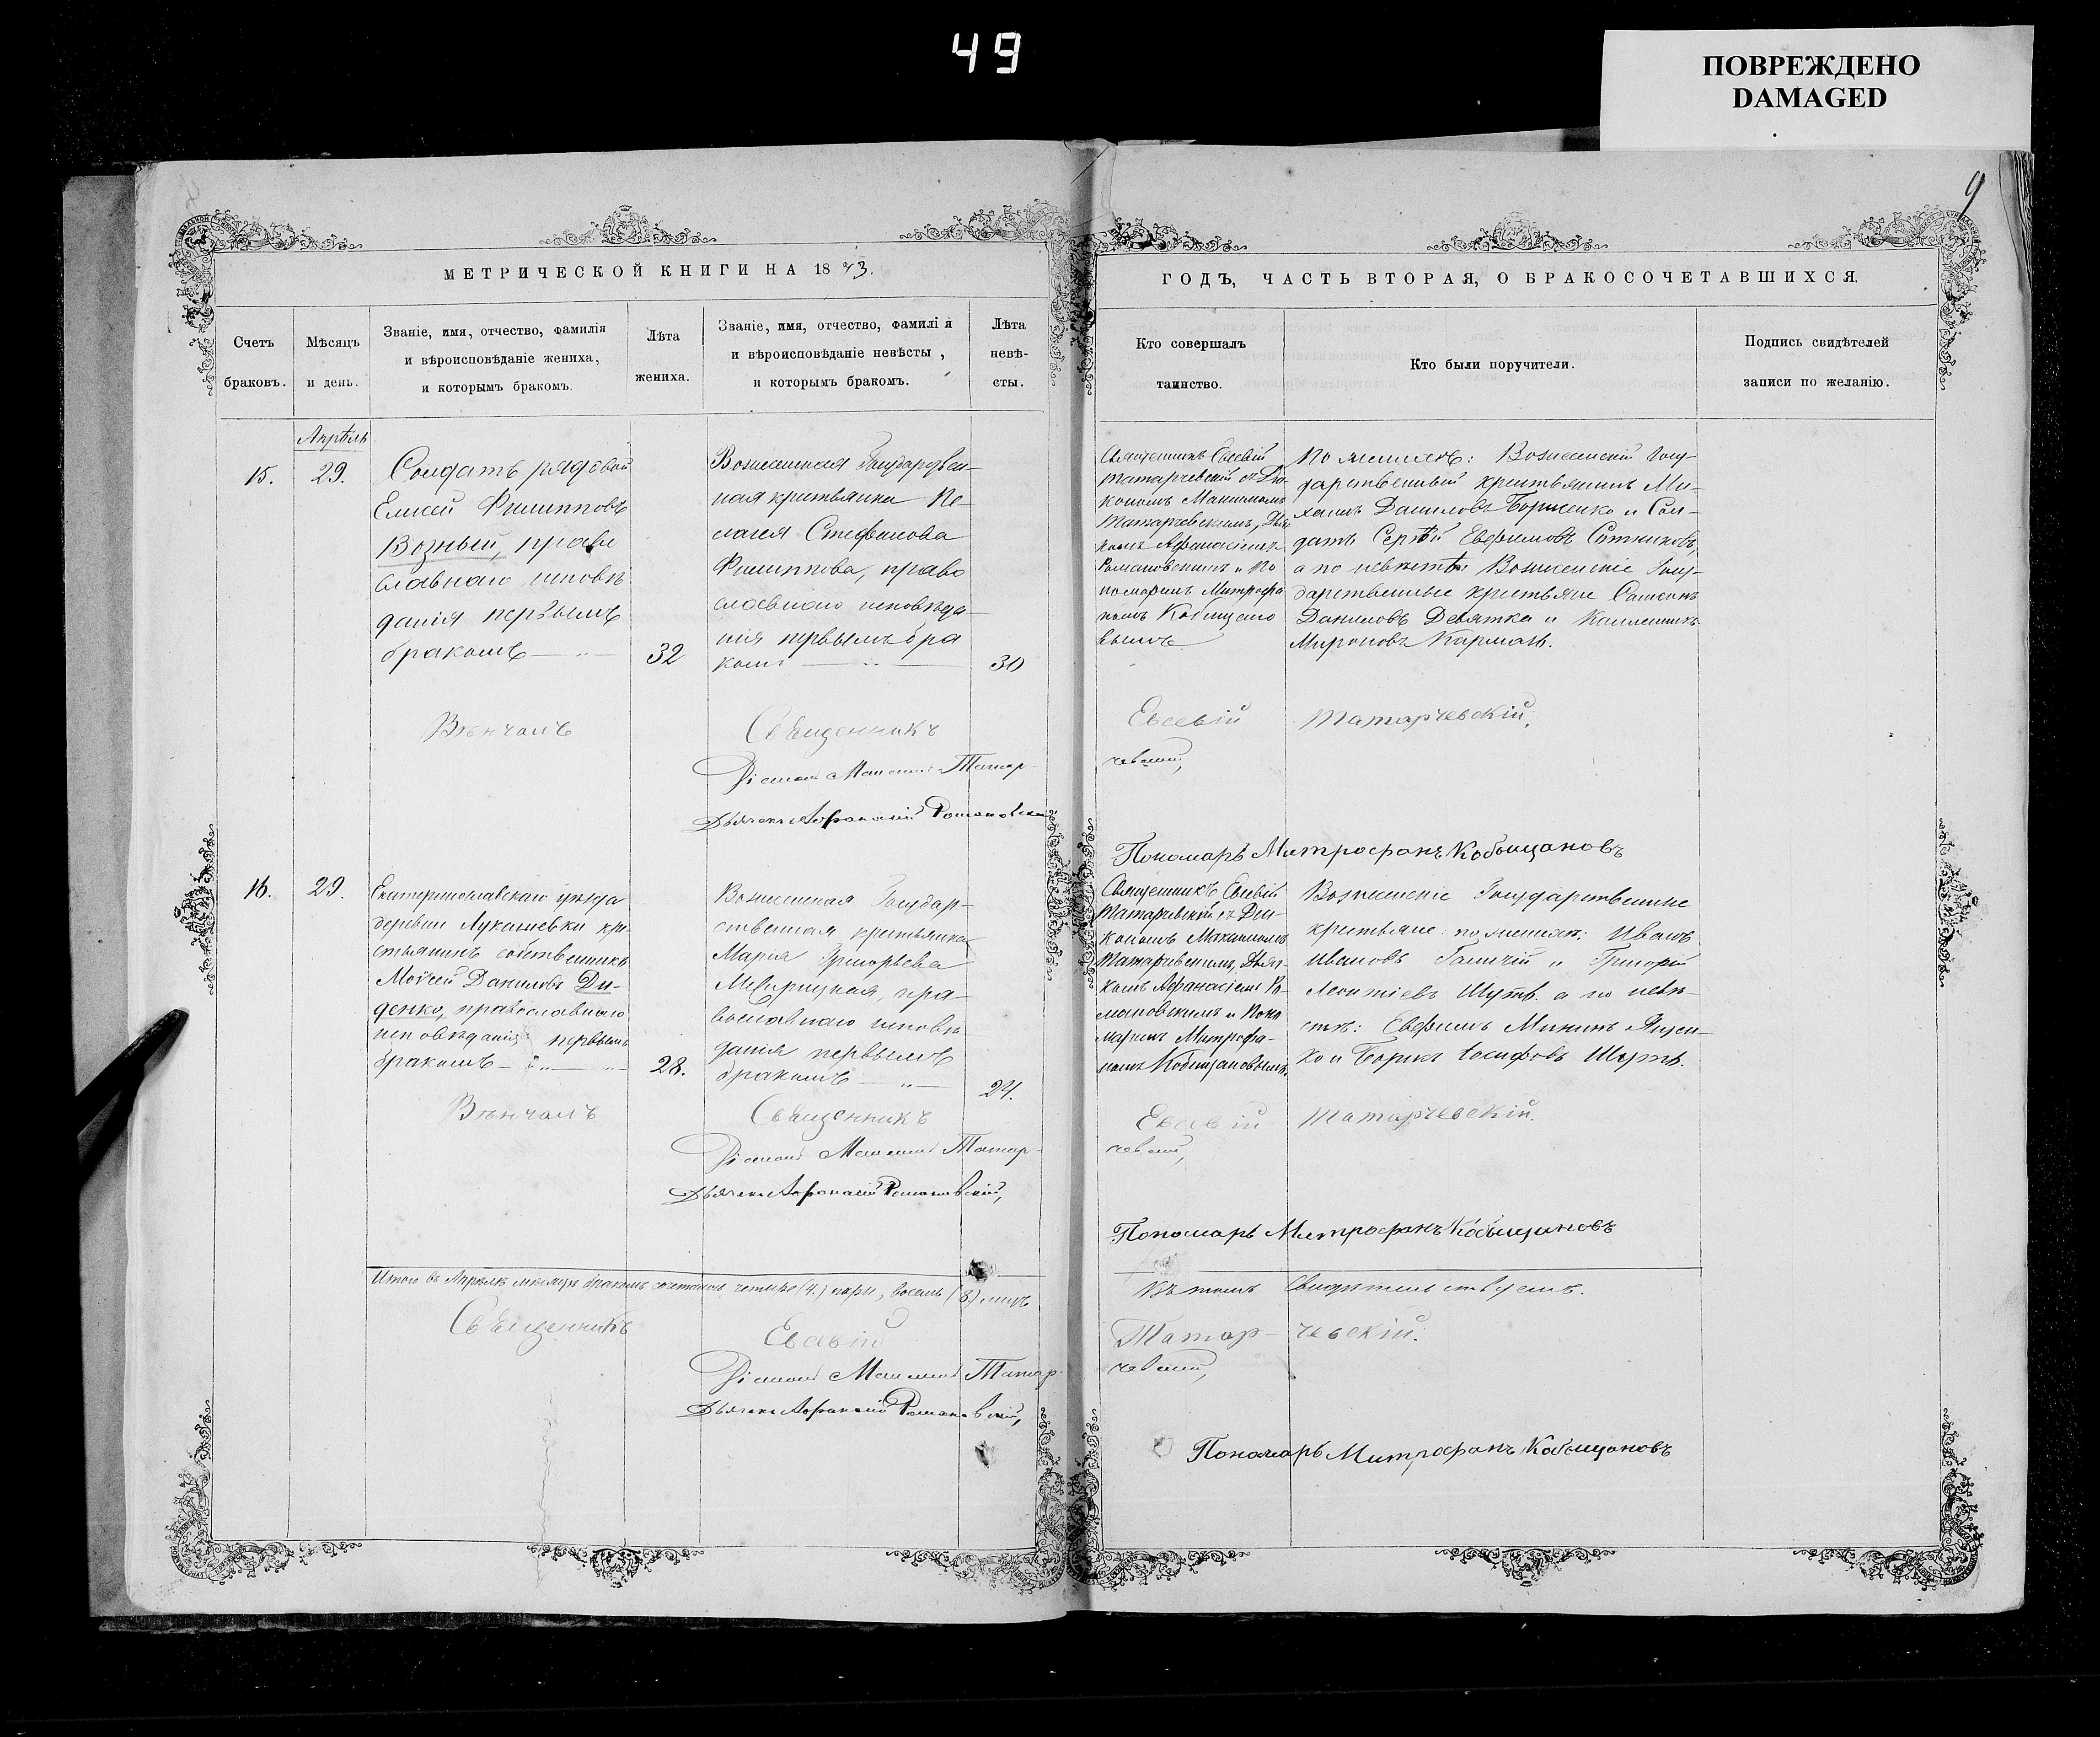 49
ПОВРЕЖДЕНО
DAMAGED
9
МЕТРИЧЕСКОЙ КНИГИ НА 1873.
Счетъ
браковъ.
Мѣсяцъ
и день.
Званіе, имя, отчество, фамилія
и вѣроисповѣданіе жениха,
и которымъ бракомъ.
Лѣта
жениха.
Званіе, имя, отчество, фамилія
и вѣроисповѣданіе невѣсты,
и которымъ бракомъ.
Лѣта
невѣ-
сты.
ГОДЪ, ЧАСТЬ ВТОРАЯ, О БРАКОСОЧЕТАВШИХСЯ.
Кто совершалъ
таинство.
Кто были поручители.
Подпись свидѣтелей
записи по желанію.
Апрѣль
15.
29.
Солдатъ рядовой
Елисей Филипповъ
Возный, право
славнаго исповѣ
данія первымъ
бракомъ
32
Вознесенская Государствен-
ная крестьянка Пе-
лагея Стефанова
Филиппова, право
славнаго исповѣда
нія первымъ бра
комъ
30
Священникъ Евсевій
Татарчевскій съ Діа-
кономъ Максимомъ
Татарчевскимъ, Дьяч
комъ Афанасіемъ
Романовскимъ и По
номаремъ Митрофа
номъ Кобыщано
вымъ
По женихѣ: Вознесенскій Госу-
дарственный крестьянинъ Ми-
хаилъ Даниловъ Борисенко и Сол-
датъ Сергѣй Евфимовъ Ситниковъ,
а по невѣстѣ: Вознесенскіе Госу-
дарственные крестьяне Самсонъ
Даниловъ Девятка и
Мироновъ Карманъ.
Вѣнчалъ Священникъ Евсевій Татарчевскій,
Діаконъ Максимъ Татар-чевскій,
Дьячекъ Афанасій Романовскій
Пономарь Митрофанъ Кобыщановъ
16.
29.
Екатеринославскаго уѣзда
деревни Лукашевки кре
стьянинъ собственникъ
Моѵсей Даниловъ Ди-
денко, православнаго
исповѣданія первымъ
бракомъ
28.
Вознесенская Государ-
ственная крестьянка
Марія Григорьева
пра-
вославнаго исповѣ
данія первымъ
бракомъ
24.
Священникъ Евсевій
Татарчевскій съ Діа-
кономъ Максимомъ
Татарчевскимъ, Дьяч-
комъ Афанасіемъ Ро-
мановскимъ и Поно
маремъ Митрофа-
номъ Кобыщановымъ.
Вознесенскіе Государственные
крестьяне: по женихѣ: Иванъ
Ивановъ и Григорій
Леонтіевъ Шутъ, а по невѣ-
стѣ: Евфимъ Мининъ Яцен-
ко и Борисъ Іосифовъ Шутъ.
Вѣнчалъ Священникъ Евсевій Татарчевскій.
Діаконъ Максимъ Татар-чевскій,
Дьячекъ Афанасій Романовскій,
Пономарь Митрофанъ Кобыщановъ
Итого въ Апрѣлѣ мѣсяцѣ бракомъ сочетаны четыре (4.) пары, восемь (8.) лицъ
Въ томъ свидѣтельствуемъ.
Священникъ Евсевій Татар-чевскій.
Діаконъ Максимъ Татар-чевскій,
Дьячекъ Афанасій Романовскій,
Пономарь Митрофанъ Кобыщановъ